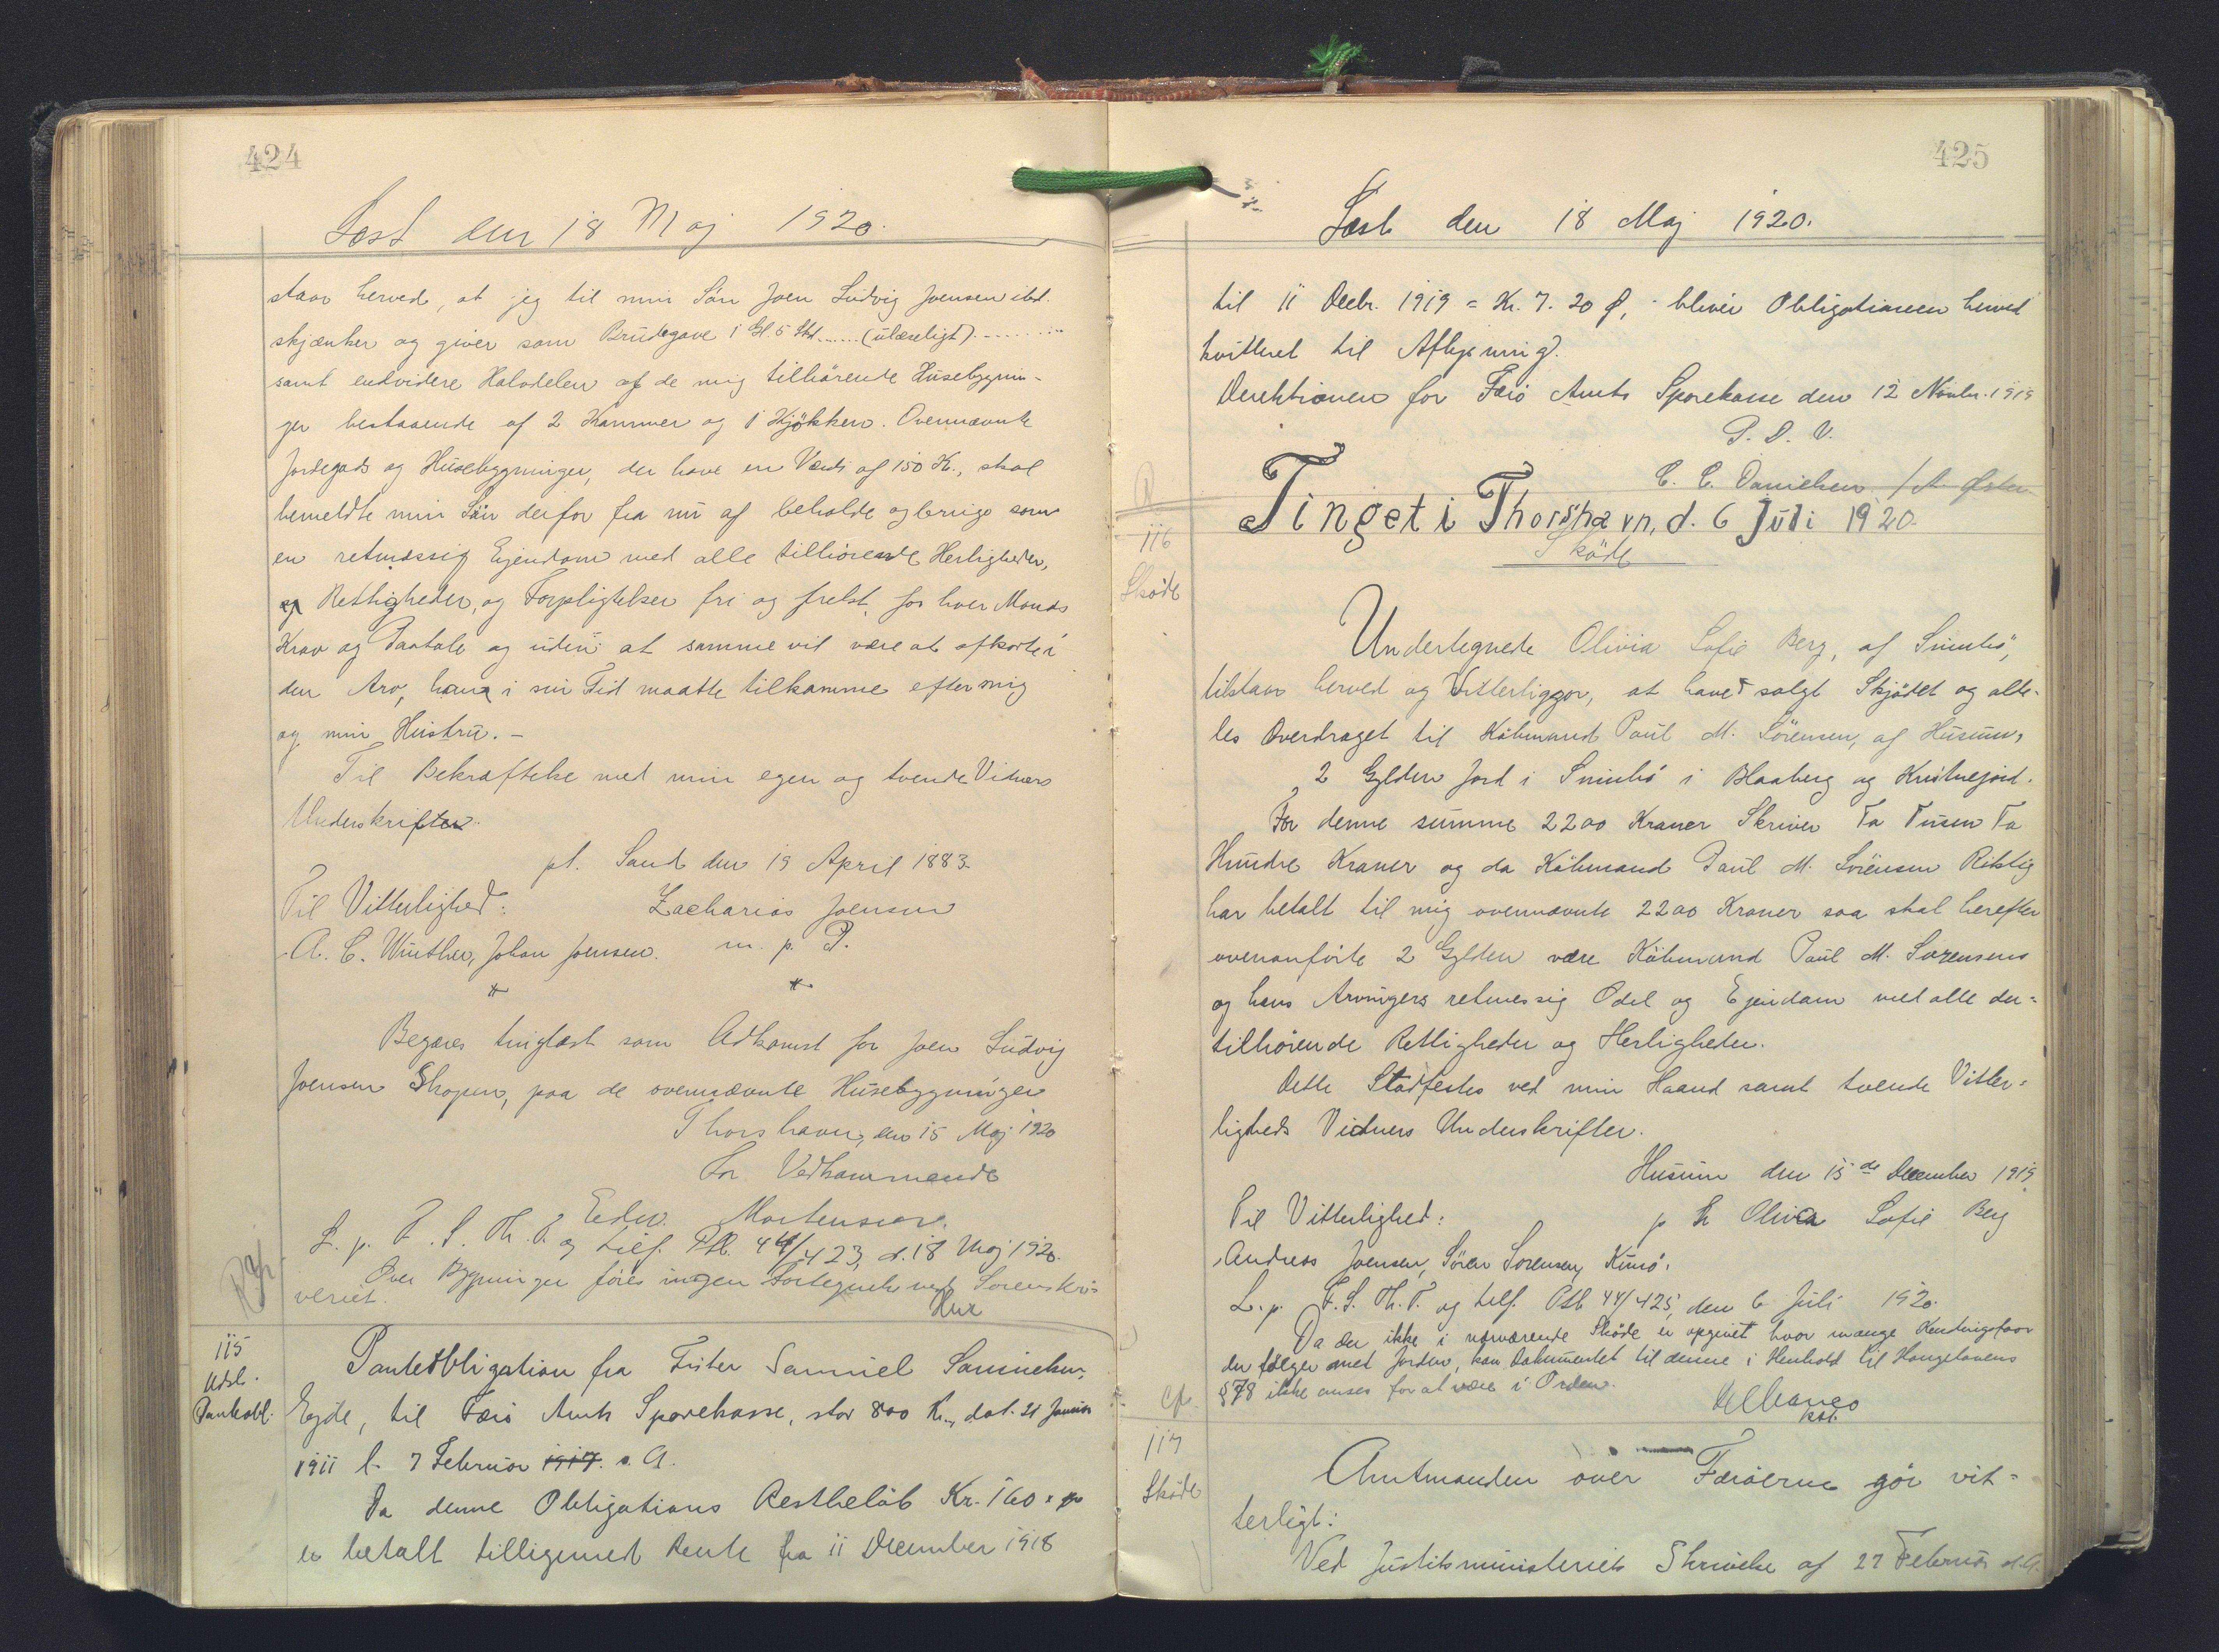 424
Læst den 18 Maj 1920.
staar herved, at jeg til min Sön Joen Ludvig Joensen ibd.
skjænker og giver som Brudegave 1 Gl. 5 Skd. ...... (ulæseligt) ..........
samt endvidere Halvdelen af de mig tilhörende Husebygnin-
ger bestaaende af 2 Kammer og 1 Kjökken. Ovennævnte
Jordegods og Husebygninger, der have en Værdi af 150 Kr., skal
bemeldte min Sön derfor fra nu af beholde og bruge som
en retmæssig Ejendom med alle tilhörende Herligheder,
og Rettigheder, og Forpligtelser fri og frelst for hver Mands
Krav og Paatale og uden at samme vil være at afkorte i
den Arv, ham i sin Tid maatte tilkomme efter mig
og min Hustru. -
Til Bekræftelse med min egen og tvende Vidners
Underskrifter.
pt. Sand den 19 April 1883.
Til Vitterlighed: Zacharias Joensen
A. C. Winther, Johan Joensen. m. p. P.
Begæres tinglæst som Adkomst for Joen Ludvig
Joensen Skopun, paa de ovennævnte Husebygninger
Thorshavn, den 15 Maj 1920
For Vedkommende
Edw. Mortensen.
L. p. F. S. Th. P. og tilf. Ptb. 44/423, d. 18 Maj 1920.
Over Bygninger föres ingen Fortegnelse ved Sorenskri-
veriet.
115
Udsl.
Pantobl.
Panteobligation fra Fisker Samuel Samuelsen,
Ejde, til Færö Amts Sparekasse, stor 800 Kr., dat. 21 Januar
1911 l. 7 Februar 1917. s. A.
Da denne Obligations Restbelöb Kr. 160
er betalt tilligemed Rente fra 11 December 1918
425
Læst den 18 Maj 1920.
til 11 Decbr. 1919 = Kr. 7. 20 Ø, - bliver Obligationen herved
kvitteret til Aflysning.
Direktionen for Færö Amts Sparekasse den 12 Novbr. 1919
P. D. V.
C. C. Danielsen
Tinget i Thorshavn, d. 6 Juli 1920.
116
Sköde
Sköde
Undertegnede Olivia Sofie Berg, af Svinö,
tilstaar herved og Vitterliggör, at haved solgt Skjödet og alde-
les Overdraget til Köbmand Poul M. Sörensen, af Husum,
2 Gylden Jord i Svinö i Blaaberg og Kristnejord.
For denne summe 2200 Kroner Skriver To Tusen To
Hundre Kroner og da Köbmand Poul M. Sörensen Riktig
har betalt til mig ovennævnte 2200 Kroner saa skal herefter
ovenanförte 2 Gylden være Köbmand Poul M. Sorensens
og hans Arvingers retmessig Odel og Ejendom med alle der-
tilhörende Rettigheder og Herligheder.
Dette Stadfestes ved min Haand samt tvende Vitter-
ligheds Vidners Underskrifter.
Husum den 15de December 1919
Til Vitterlighed: Olivia Sofie Berg
Andreas Joensen, Sören Sorensen, Kunö.
L. p. F. S. Th. P. og tilf. Ptb 44/425, den 6 Juli 1920.
Da der ikke i nærværende Sköde er opgivet hvor mange Hundingsfaar
der fölger med Jorden, kan Dokumentet til denne i Henhold til Haugelovens
§ 78 ikke anses for at være i Orden.
cfr.
kst.
117
Sköde
Amtmanden over Færöerne gör vit-
terligt:
Ved Justitsministeriets Skrivelse af 27 Februar